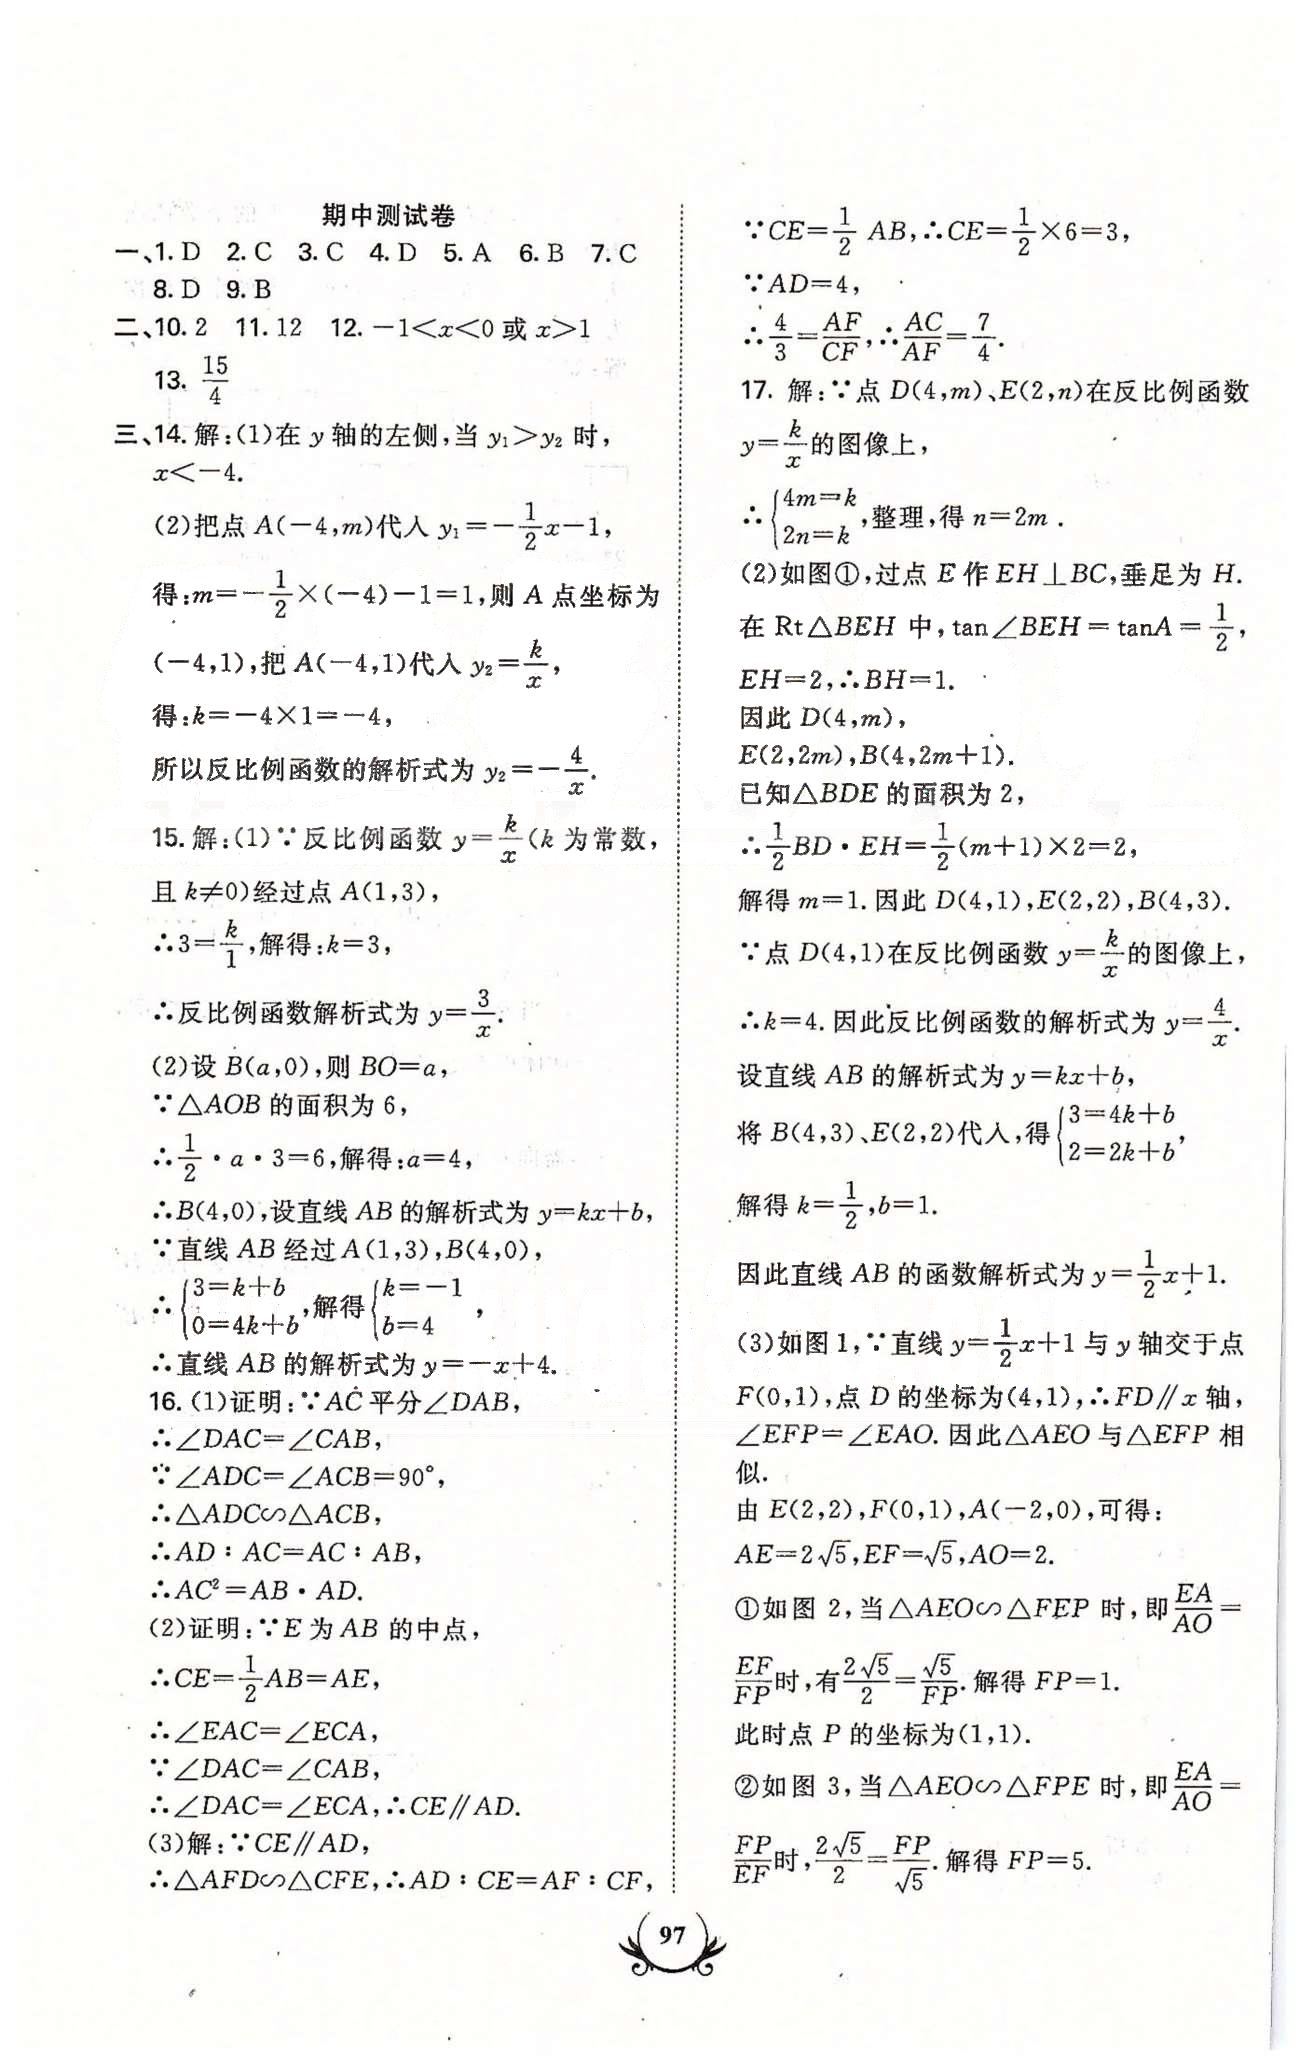 期中测试卷
一、1. D 2. C 3. C 4. D 5. A 6. B 7. C
8. D 9. B
二、10. 2 11. 12 12. －1＜x＜0 或 x＞1
13. 15/4
三、14. 解:(1)在 y 轴的左侧,当 y₁＞y₂ 时,
x＜－4.
(2)把点 A(－4,m)代入 y₁＝－1/2x－1,
得:m＝－1/2×(－4)－1＝1,则 A 点坐标为
(－4,1),把 A(－4,1)代入 y₂＝k/x,
得:k＝－4×1＝－4,
所以反比例函数的解析式为 y₂＝－4/x.
15. 解:(1)∵反比例函数 y＝k/x(k 为常数,
且 k≠0)经过点 A(1,3),
∴3＝k/1,解得:k＝3,
∴反比例函数解析式为 y＝3/x.
(2)设 B(a,0),则 BO＝a,
∵△AOB 的面积为 6,
∴1/2·a·3＝6,解得:a＝4,
∴B(4,0),设直线 AB 的解析式为 y＝kx＋b,
∵直线 AB 经过 A(1,3),B(4,0),
∴{3＝k＋b 0＝4k＋b,解得{k＝－1 b＝4,
∴直线 AB 的解析式为 y＝－x＋4.
16. (1)证明:∵AC 平分∠DAB,
∴∠DAC＝∠CAB,
∵∠ADC＝∠ACB＝90°,
∴△ADC∽△ACB,
∴AD∶AC＝AC∶AB,
∴AC²＝AB·AD.
(2)证明:∵E 为 AB 的中点,
∴CE＝1/2AB＝AE,
∴∠EAC＝∠ECA,
∵∠DAC＝∠CAB,
∴∠DAC＝∠ECA,∴CE∥AD.
(3)解:∵CE∥AD,
∴△AFD∽△CFE,∴AD∶CE＝AF∶CF,
∵CE＝1/2 AB,∴CE＝1/2×6＝3,
∵AD＝4,
∴4/3＝AF/CF,∴AC/AF＝7/4.
17. 解:∵点 D(4,m)、E(2,n)在反比例函数
y＝k/x的图像上,
∴{4m＝k 2n＝k,整理,得 n＝2m .
(2)如图①,过点 E 作 EH⊥BC,垂足为 H.
在 Rt△BEH 中,tan∠BEH＝tanA＝1/2,
EH＝2,∴BH＝1.
因此 D(4,m),
E(2,2m),B(4,2m＋1).
已知△BDE 的面积为 2,
∴1/2BD·EH＝1/2(m＋1)×2＝2,
解得 m＝1. 因此 D(4,1),E(2,2),B(4,3).
∵点 D(4,1)在反比例函数 y＝k/x的图像上,
∴k＝4. 因此反比例函数的解析式为 y＝4/x.
设直线 AB 的解析式为 y＝kx＋b,
将 B(4,3)、E(2,2)代入,得{3＝4k＋b 2＝2k＋b,
解得 k＝1/2,b＝1.
因此直线 AB 的函数解析式为 y＝1/2x＋1.
(3)如图 1,∵直线 y＝1/2x＋1 与 y 轴交于点
F(0,1),点 D 的坐标为(4,1),∴FD∥x 轴,
∠EFP＝∠EAO. 因此△AEO 与△EFP 相
似.
由 E(2,2),F(0,1),A(－2,0),可得:
AE＝2√5,EF＝√5,AO＝2.
①如图 2,当△AEO∽△FEP 时,即EA/AO＝
EF/FP时,有2√5/2＝√5/FP. 解得 FP＝1.
此时点 P 的坐标为(1,1).
②如图 3,当△AEO∽△FPE 时,即EA/AO＝
FP/EF时,2√5/2＝FP/√5. 解得 FP＝5.
97